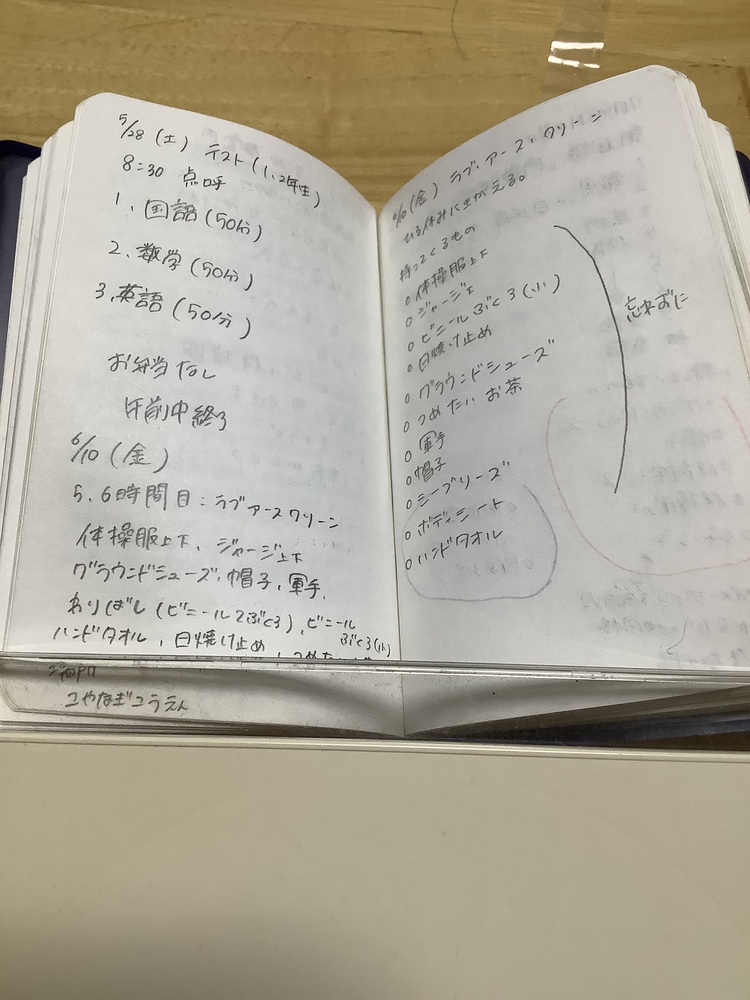 5/28(土) テスト(1、2年生)
8:30 点呼
1、国語(50分)
2、数学(50分)
3、英語(50分)
お弁当なし
午前中終了
6/10(金)
5、6時間目:ラブアースクリーン
体操服上下、ジャージ上下
グラウンドシューズ、帽子、軍手、
わりばし(ビニール2ぶくろ)、ビニールぶくろ(小)
ハンドタオル、日焼け止め、つめたい
こやなぎこうえん
6/10(金) ラブ・アース・クリーン
ひる休みに生がえる。
持ってくるもの
○体操服上下
○ジャージ上下
○ビニールぶくろ(小)
○日焼け止め
○グラウンドシューズ
○つめたいお茶
○軍手
○帽子
○シーブリーズ
○ボディシート
○ハンドタオル
忘れずに